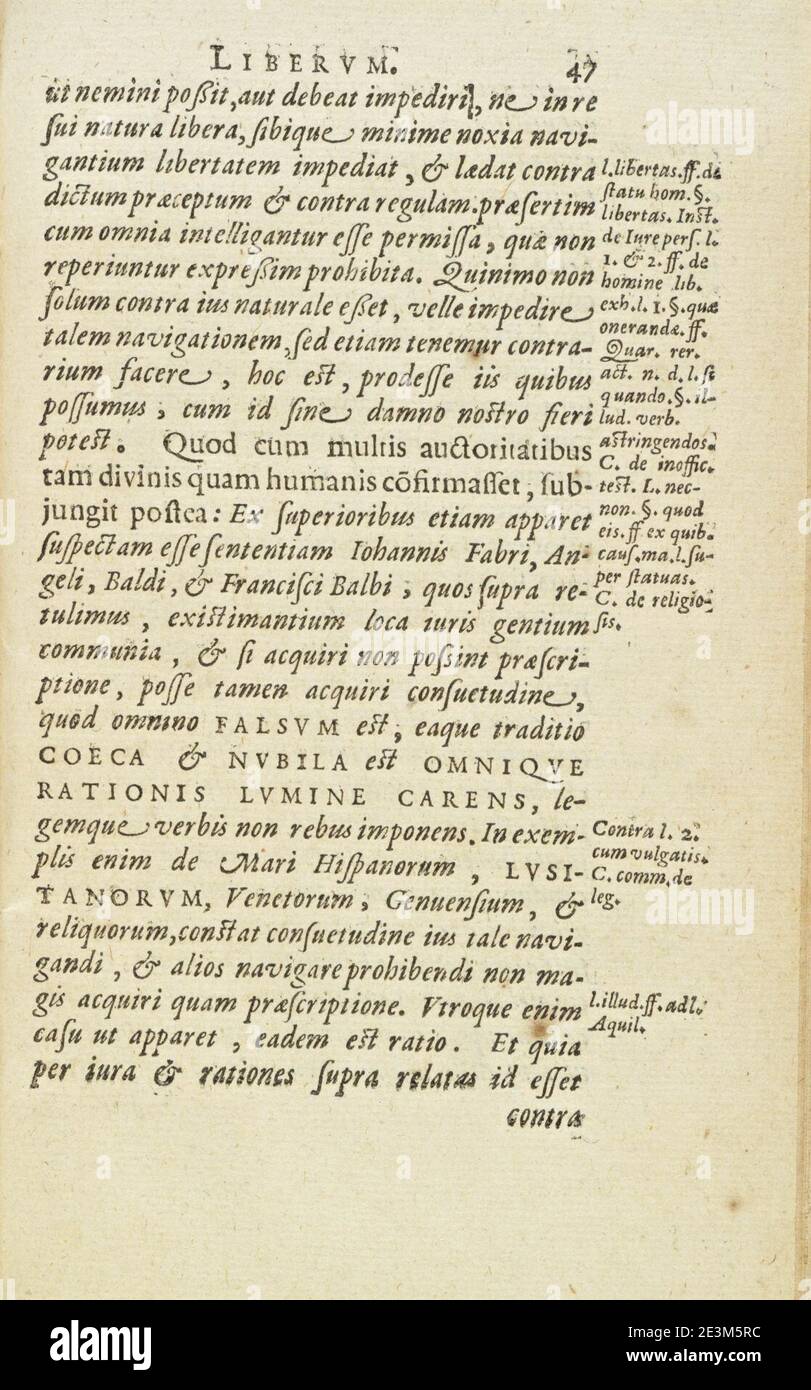 LIBERVM. 47
ut nemini poßit, aut debeat impediri, ne in re
ſui natura libera, ſibique minime noxia navi-
gantium libertatem impediat, & lædat contra
dictum præceptum & contra regulam. præſertim
cum omnia intelligantur eſſe permiſſa, quæ non
reperiuntur expreßim prohibita. Quinimo non
ſolum contra ius naturale eßet, velle impedire
talem navigationem, ſed etiam tenemur contra-
rium facere, hoc est, prodeſſe iis quibus
poſſumus, cum id ſine damno nostro fieri
potest. Quod cum multis auctoritatibus
tam divinis quam humanis cōfirmaſſet, ſub-
jungit postea: Ex ſuperioribus etiam apparet
ſuſpectam eſſe ſententiam Iohannis Fabri, An-
geli, Baldi, & Franciſci Balbi, quos ſupra re-
tulimus, existimantium loca iuris gentium
communia, & ſi acquiri non poſſint præſcri-
ptione, poſſe tamen acquiri conſuetudine,
quod omnino FALSVM est, eaque traditio
COECA & NVBILA est OMNIQVE
RATIONIS LVMINE CARENS, le-
gemque verbis non rebus imponens. In exem-
plis enim de Mari Hiſpanorum, LVSI-
TANORVM, Venetorum, Genuenſium, &
reliquorum, constat conſuetudine ius tale navi-
gandi, & alios navigare prohibendi non ma-
gis acquiri quam præſcriptione. Vtroque enim
caſu ut apparet, eadem est ratio. Et quia
per iura & rationes ſupra relatas id eſſet
contra
l. libertas. ff. de
statu hom. §.
libertas. Inst.
de Iure perſ. l.
1. & 2. ff. de
homine lib.
exh. l. 1. §. quæ
onerandæ. ff.
Quar. rer.
act. n. d. l. ſi
quando. §. il-
lud. verb.
astringendos.
C. de inoffic.
test. L. nec-
non. §. quod
eis. ff ex quib.
cauſ. ma. l. ſu-
per statuas.
C. de religio-
ſis.
Contra l. 2.
cum vulgatis.
C. comm. de
leg.
l. illud. ff. ad l.
Aquil.
alamy
alamy
alamy
a
a
a
a
alamy
Image ID: 2E3M5RC
www.alamy.com